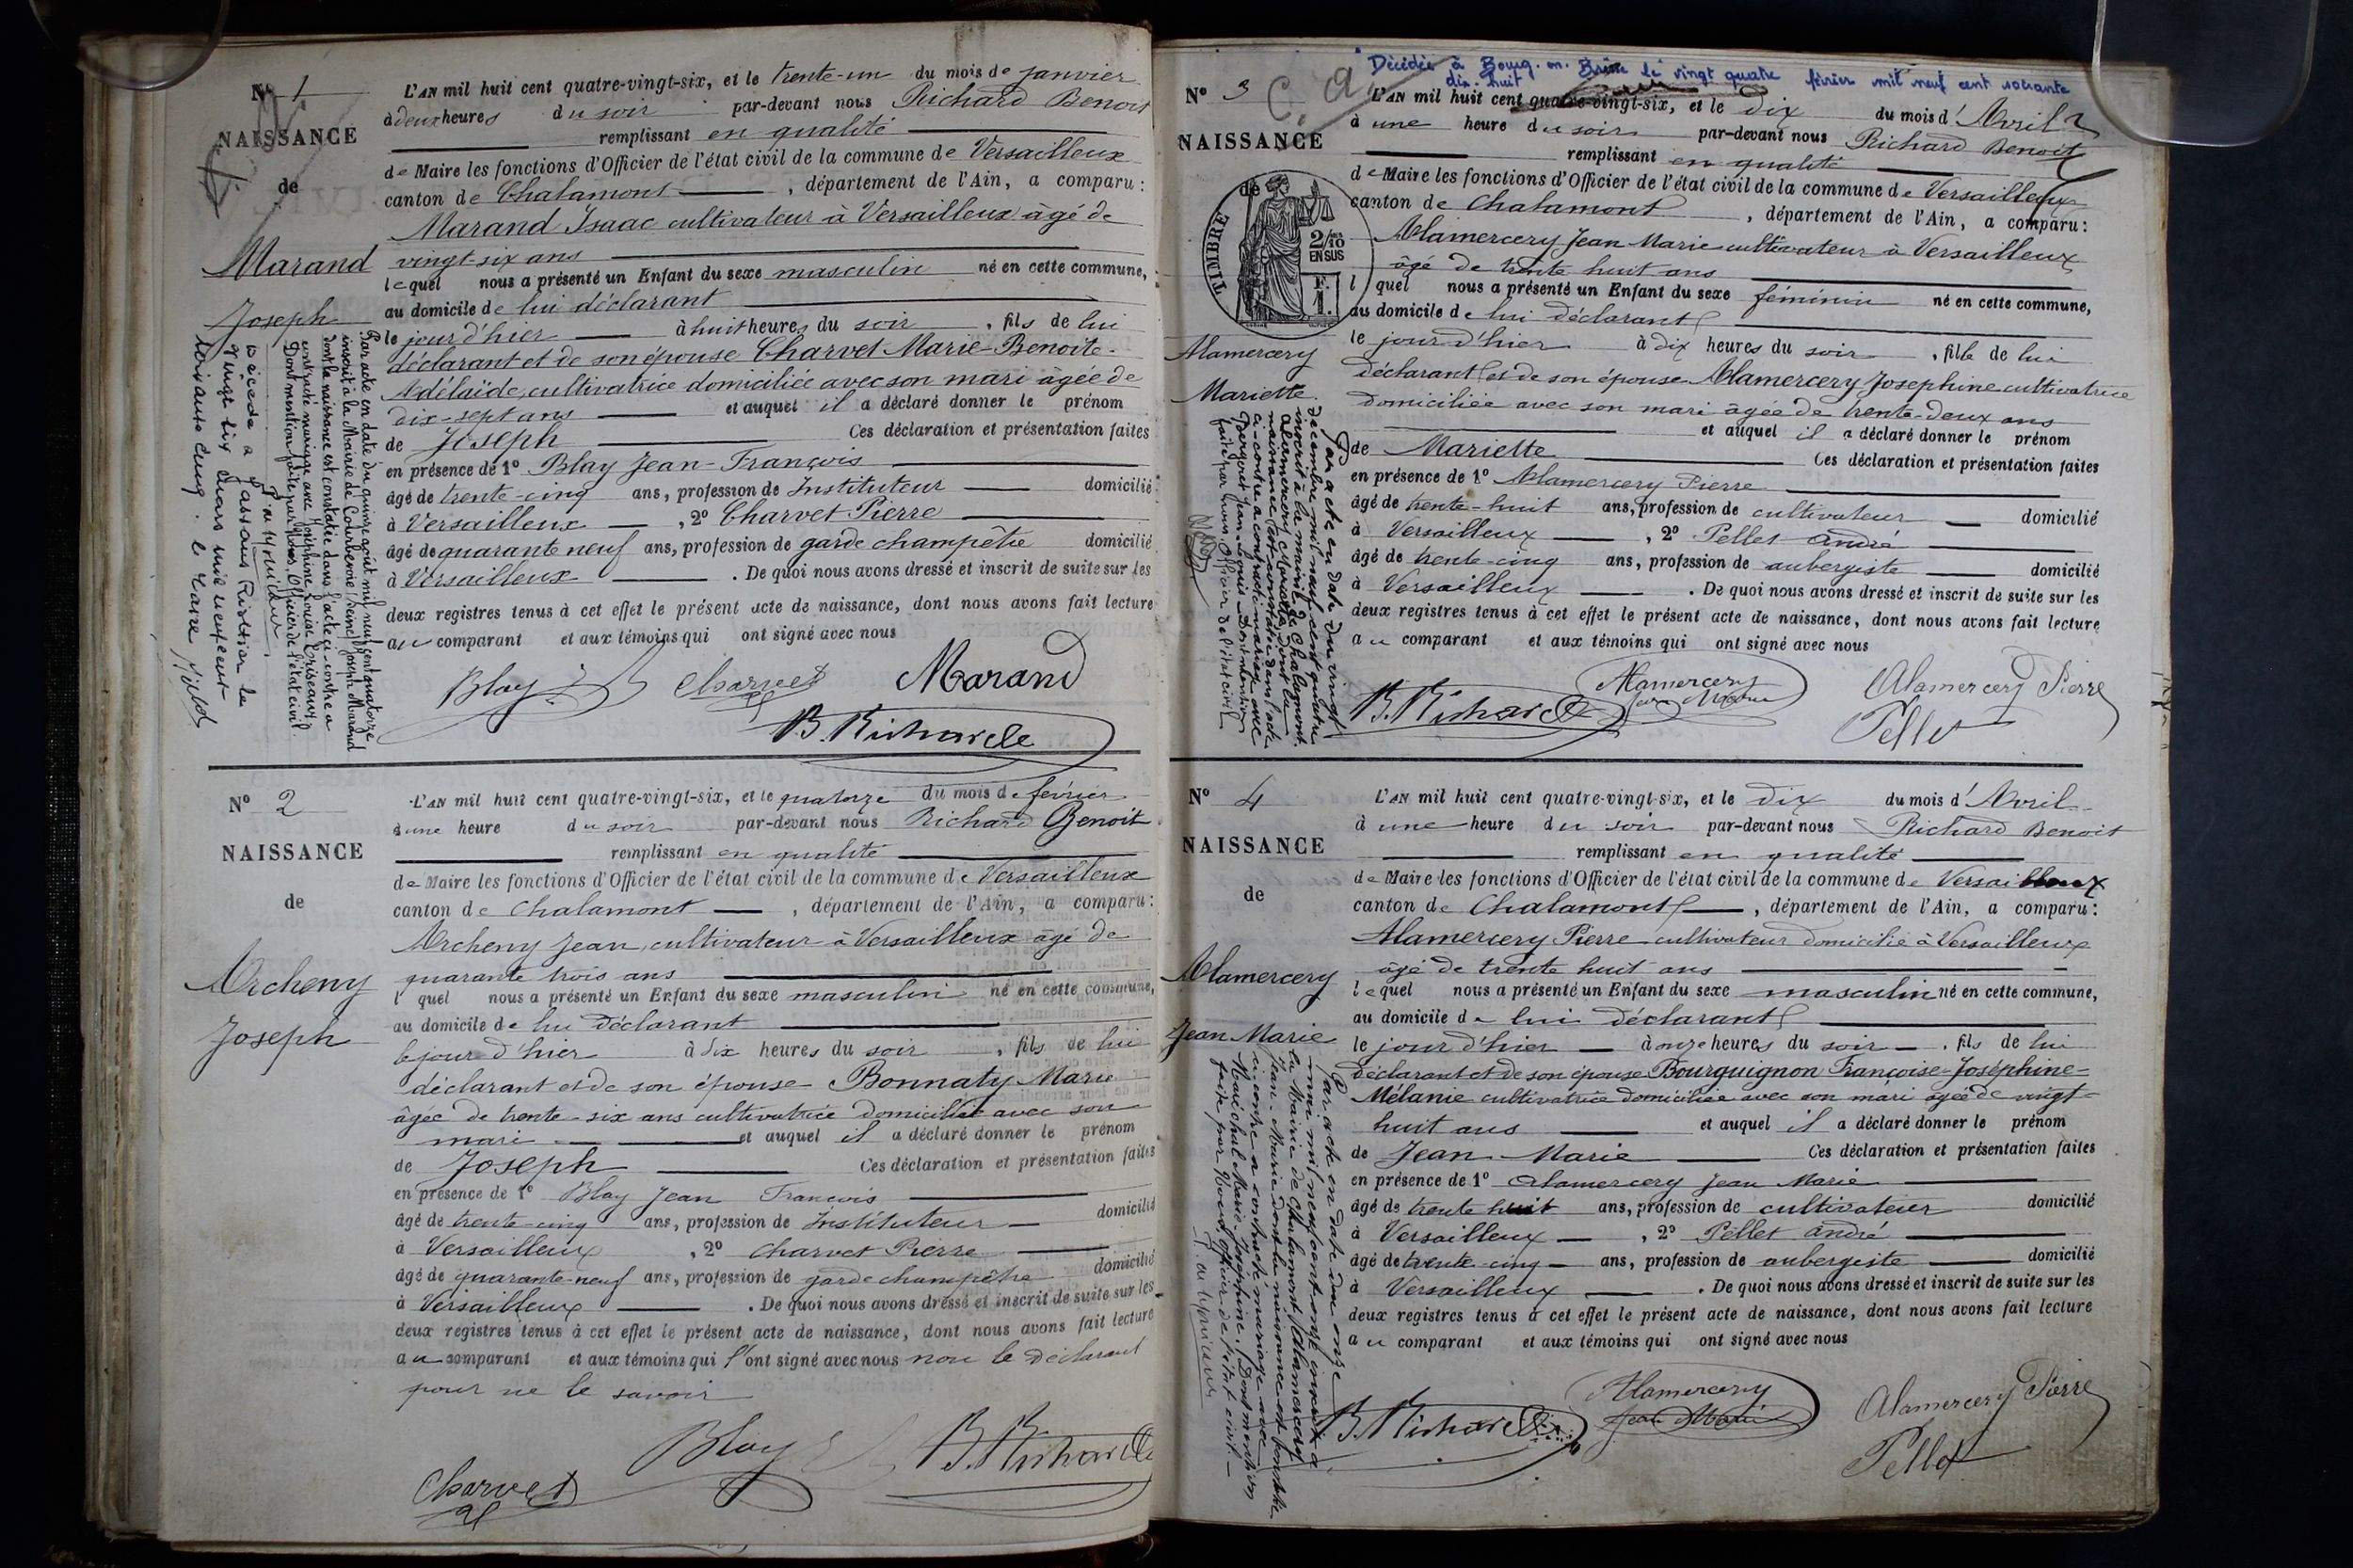 N° 1
NAISSANCE
de
Marand
Joseph
L'AN mil huit cent quatre-vingt-six, et le trente-un du mois de janvier
à deux heures du soir par-devant nous Richard Benoit
remplissant en qualité
de Maire les fonctions d'Officier de l'état civil de la commune de Versailleux
canton de Chalamont, département de l'Ain, a comparu:
Marand Isaac cultivateur à Versailleux âgé de
vingt-six ans
lequel nous a présenté un Enfant du sexe masculin né en cette commune,
au domicile de lui déclarant
le jour d'hier à huit heures du soir, fils de lui
déclarant et de son épouse Charvet Marie-Benoite-
Adélaïde, cultivatrice domiciliée avec son mari âgée de
dix-sept ans et auquel il a déclaré donner le prénom
de Joseph Ces déclaration et présentation faites
en présence de 1° Blay Jean-François
âgé de trente-cinq ans, profession de Instituteur domicilié
à Versailleux, 2° Charvet Pierre
âgé de quarante neuf ans, profession de garde champêtre domicilié
à Versailleux. De quoi nous avons dressé et inscrit de suite sur les
deux registres tenus à cet effet le présent acte de naissance, dont nous avons fait lecture
au comparant et aux témoins qui ont signé avec nous
Blay Charvet Marand
B. Richard
Par acte en date du quinze août mil neuf cent quatorze
inscrit à la Mairie de Courbevoie (Seine) Joseph Marand
dont la naissance est constatée dans l'acte ci-contre a
contracté mariage avec Joséphine Louise
Dont mention faite par Nous, Officier de l'état civil
Décédé à Rivoltier le
vingt six mars mil neuf cent
soixante cinq. Le Maire
N° 2
NAISSANCE
de
Archeny
Joseph
L'AN mil huit cent quatre-vingt-six, et le quatorze du mois de février
à une heure du soir par-devant nous Richard Benoit
remplissant en qualité
de Maire les fonctions d'Officier de l'état civil de la commune de Versailleux
canton de Chalamont, département de l'Ain, a comparu:
Archeny Jean, cultivateur à Versailleux âgé de
quarante trois ans
lequel nous a présenté un Enfant du sexe masculin né en cette commune,
au domicile de lui déclarant
le jour d'hier à dix heures du soir, fils de lui
déclarant et de son épouse Bonnaty Marie
âgée de trente-six ans cultivatrice domiciliée avec son
mari et auquel il a déclaré donner le prénom
de Joseph Ces déclaration et présentation faites
en présence de 1° Blay Jean François
âgé de trente-cinq ans, profession de Instituteur domicilié
à Versailleux, 2° Charvet Pierre
âgé de quarante-neuf ans, profession de garde champêtre domicilié
à Versailleux. De quoi nous avons dressé et inscrit de suite sur les
deux registres tenus à cet effet le présent acte de naissance, dont nous avons fait lecture
au comparant et aux témoins qui l'ont signé avec nous non le déclarant
pour ne le savoir
Blay B. Richard
Charvet
Décédée à Bourg-en-Bresse le vingt quatre février mil neuf cent soixante
dix huit
N° 3
NAISSANCE
de
TIMBRE
2/10
EN SUS
F.
1.
Alamercery
Mariette
L'AN mil huit cent quatre-vingt-six, et le dix du mois d'Avril
à une heure du soir par-devant nous Richard Benoit
remplissant en qualité
de Maire les fonctions d'Officier de l'état civil de la commune de Versailleux
canton de Chalamont, département de l'Ain, a comparu:
Alamercery Jean Marie cultivateur à Versailleux
âgé de trente huit ans
l quel nous a présenté un Enfant du sexe féminin né en cette commune,
au domicile de lui déclarant
le jour d'hier à dix heures du soir, fille de lui
déclarant et de son épouse Alamercery Josephine cultivatrice
domiciliée avec son mari âgée de trente-deux ans
et auquel il a déclaré donner le prénom
de Mariette Ces déclaration et présentation faites
en présence de 1° Alamercery Pierre
âgé de trente-huit ans, profession de cultivateur domicilié
à Versailleux, 2° Pellet André
âgé de trente-cinq ans, profession de aubergiste domicilié
à Versailleux. De quoi nous avons dressé et inscrit de suite sur les
deux registres tenus à cet effet le présent acte de naissance, dont nous avons fait lecture
au comparant et aux témoins qui ont signé avec nous
B. Richard Alamercery Jean Marie Alamercery Pierre
Pellet
Par acte en date du vingt
décembre mil neuf cent quatre
inscrit à la mairie de Chalamont,
Alamercery Mariette, dont la
naissance est constatée dans l'acte
ci-contre a contracté mariage avec
Jean-Louis. Dont mention
faite par nous officier de l'état civil
N° 4
NAISSANCE
de
Alamercery
Jean Marie
L'AN mil huit cent quatre-vingt-six, et le dix du mois d'Avril
à une heure du soir par-devant nous Richard Benoit
remplissant en qualité
de Maire les fonctions d'Officier de l'état civil de la commune de Versailleux
canton de Chalamont, département de l'Ain, a comparu:
Alamercery Pierre cultivateur domicilié à Versailleux
âgé de trente huit ans
lequel nous a présenté un Enfant du sexe masculin né en cette commune,
au domicile de lui déclarant
le jour d'hier à onze heures du soir, fils de lui
déclarant et de son épouse Bourguignon Françoise-Joséphine-
Mélanie cultivatrice domiciliée avec son mari âgée de vingt-
huit ans et auquel il a déclaré donner le prénom
de Jean Marie Ces déclaration et présentation faites
en présence de 1° Alamercery Jean Marie
âgé de trente huit ans, profession de cultivateur domicilié
à Versailleux, 2° Pellet André
âgé de trente-cinq ans, profession de aubergiste domicilié
à Versailleux. De quoi nous avons dressé et inscrit de suite sur les
deux registres tenus à cet effet le présent acte de naissance, dont nous avons fait lecture
au comparant et aux témoins qui ont signé avec nous
B. Richard Alamercery Jean Marie Alamercery Pierre
Pellet
Par acte en date du onze
mai mil neuf cent onze inscrit à
la Mairie de Chalamont, Alamercery
Jean-Marie dont la naissance est constatée
ci-contre a contracté mariage avec
Maréchal Marie-Joséphine. Dont mention
faite par Nous officier de l'état civil